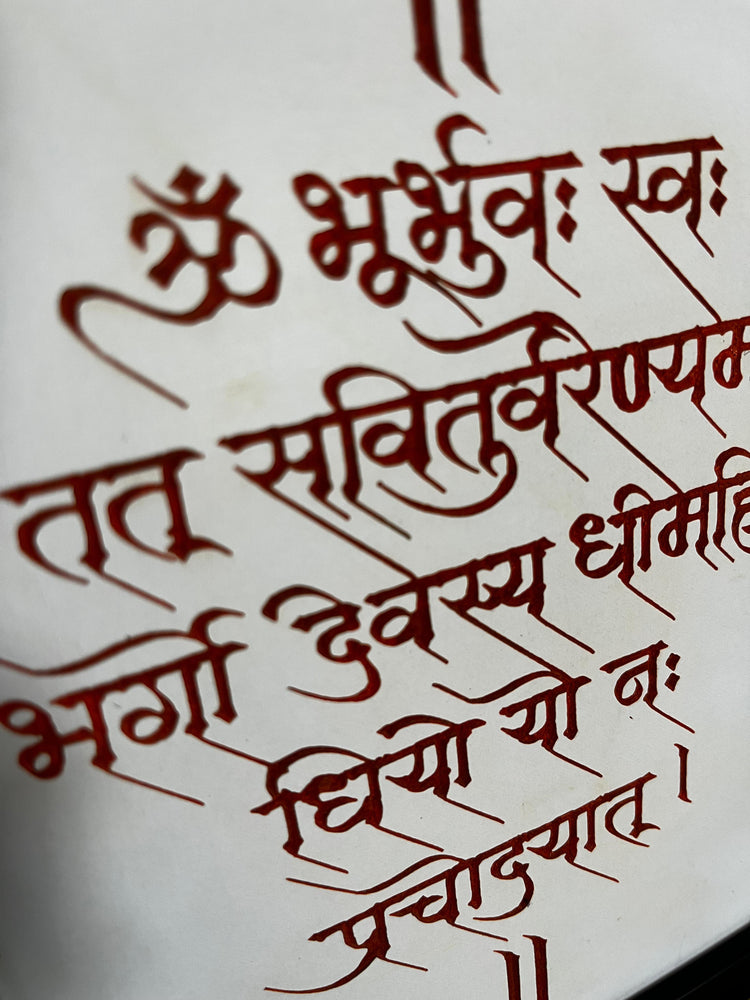 ॥
ॐ भूर्भुवः स्वः
तत् सवितुर्वरेण्यम
भर्गो देवस्य धीमहि
धियो यो नः
प्रचोदयात् ।
॥